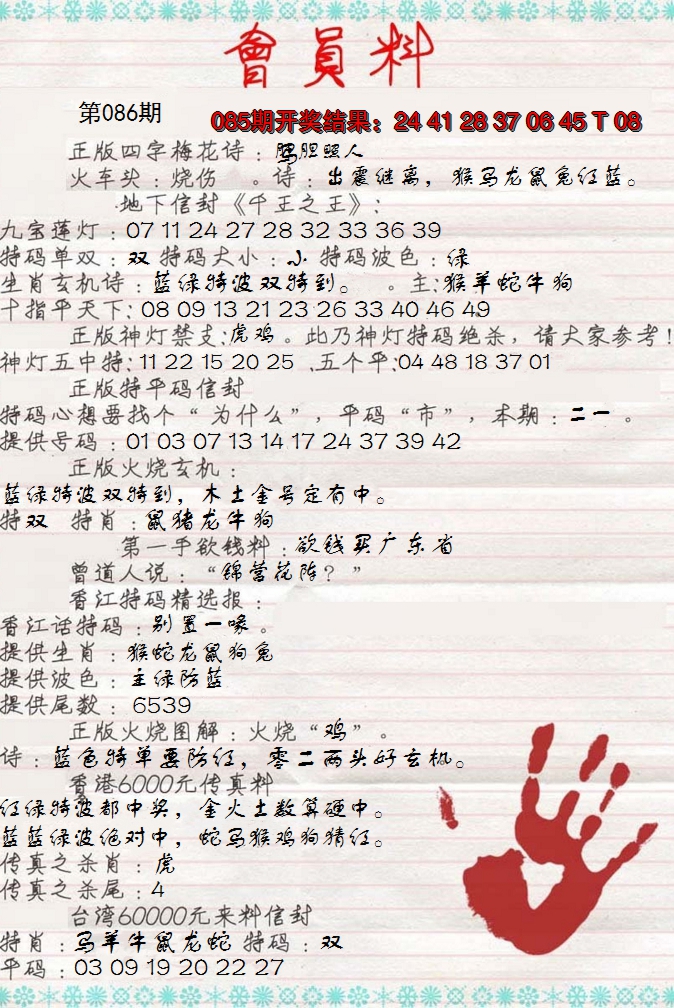 會員料
第086期
085期开奖结果：24 41 28 37 06 45 T 08
正版四字梅花诗：鹍胆照人
火车头：烧伤 。诗：出震继离，猴马龙鼠兔红蓝。
地下信封《千王之王》：
九宝莲灯：07 11 24 27 28 32 33 36 39
特码单双：双 特码大小：小 特码波色：绿
生肖玄机诗：蓝绿特波双特到。 。主:猴羊蛇牛狗
十指平天下：08 09 13 21 23 26 33 40 46 49
正版神灯禁支:虎鸡。此乃神灯特码绝杀，请大家参考!
神灯五中特：11 22 15 20 25 .五个平:04 48 18 37 01
正版特平码信封
特码心想要找个“为什么”，平码“市”，本期：二一 。
提供号码：01 03 07 13 14 17 24 37 39 42
正版火烧玄机：
蓝绿特波双特到，木土金号定有中。
特双 特肖：鼠猪龙牛狗
第一手欲钱料：欲钱买广东省
曾道人说：“锦营花阵？”
香江特码精选报：
香江话特码：别置一喙。
提供生肖：猴蛇龙鼠狗兔
提供波色：主绿防蓝
提供尾数：6539
正版火烧图解：火烧“鸡”。
诗：蓝色特单要防红，零二两头好玄机。
香港6000元传真料
红绿特波都中奖，金火土数算硬中。
蓝蓝绿波绝对中，蛇马猴鸡狗猜红。
传真之杀肖：虎
传真之杀尾：4
台湾60000元来料信封
特肖：马羊牛鼠龙蛇 特码：双
平码：03 09 19 20 22 27